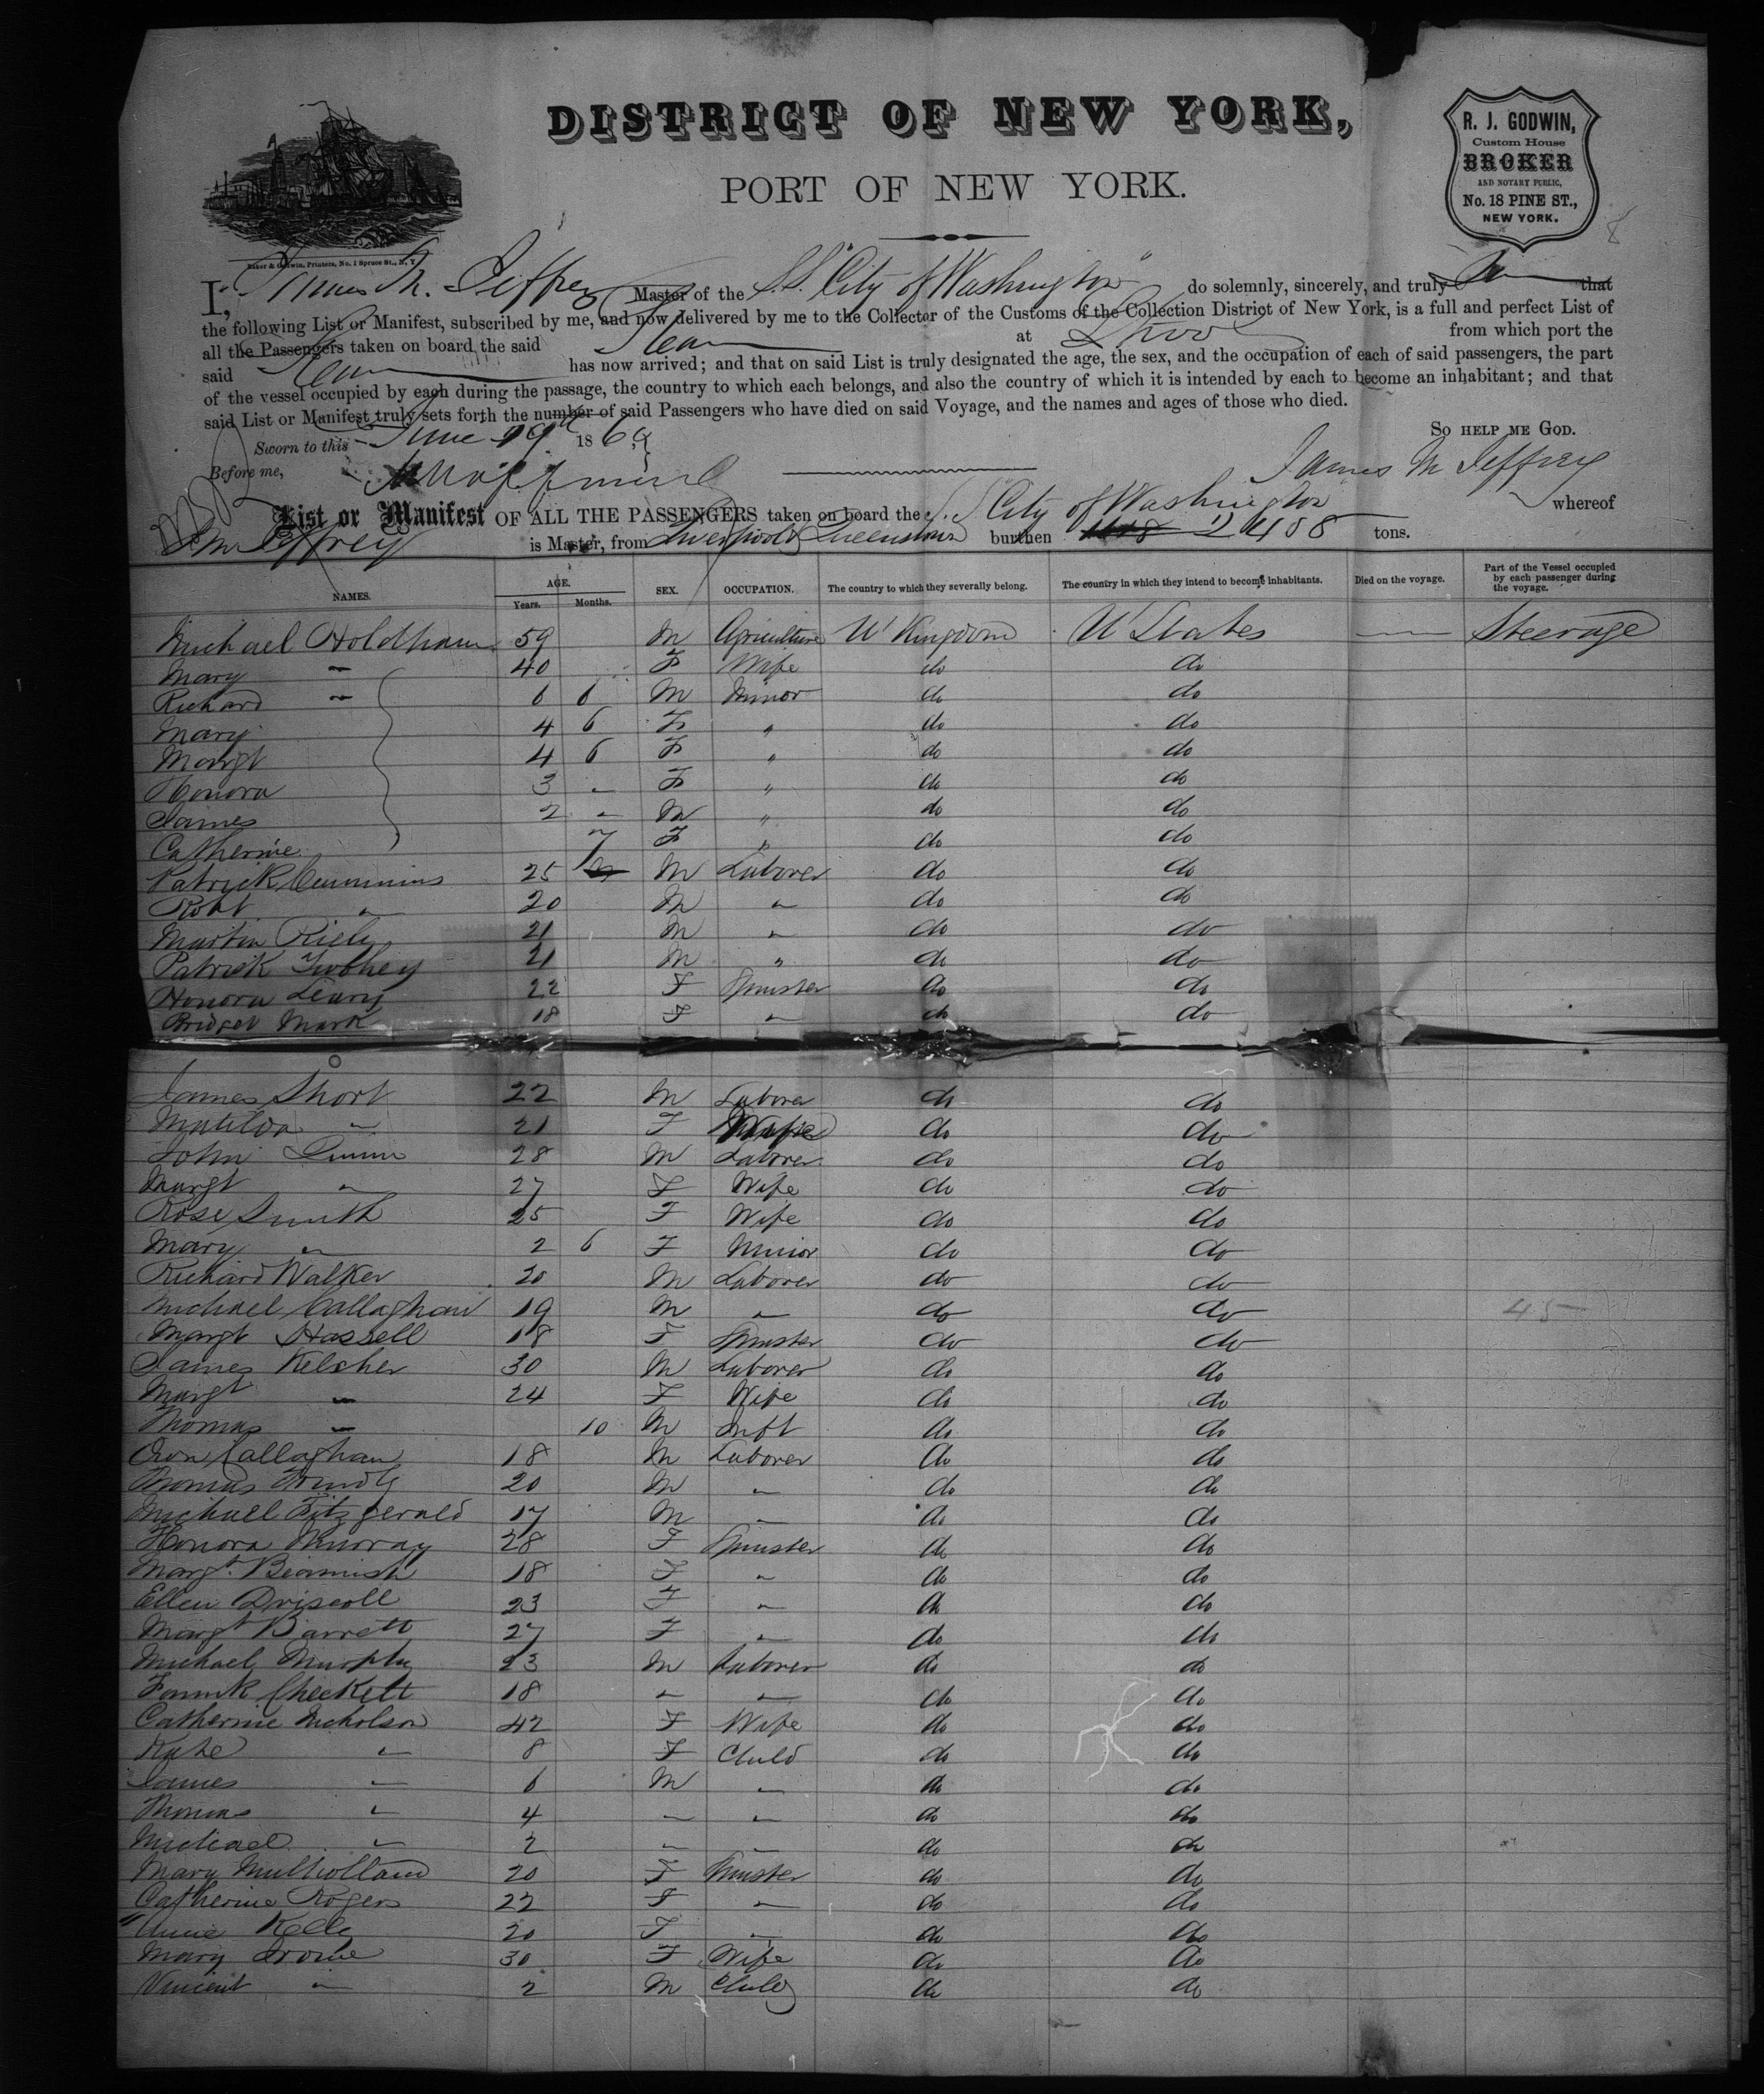 DISTRICT OF NEW YORK,
PORT OF NEW YORK.
R. J. GODWIN,
Custom House
BROKER
AND NOTARY PUBLIC,
No. 18 PINE ST.,
NEW YORK.
Baker & Godwin, Printers, No. 1 Spruce St., N. Y.
I, James M. Jeffrey Master of the S.S. "City of Washington" do solemnly, sincerely, and truly that
the following List or Manifest, subscribed by me, and now delivered by me to the Collector of the Customs of the Collection District of New York, is a full and perfect List of
all the Passengers taken on board the said Steam at L'pool from which port the
said Steam has now arrived; and that on said List is truly designated the age, the sex, and the occupation of each of said passengers, the part
of the vessel occupied by each during the passage, the country to which each belongs, and also the country of which it is intended by each to become an inhabitant; and that
said List or Manifest truly sets forth the number of said Passengers who have died on said Voyage, and the names and ages of those who died.
Sworn to this June 19 1869 So HELP ME GOD.
Before me, James M Jeffrey
List or Manifest OF ALL THE PASSENGERS taken on board the S.S City of Washington whereof
Jm Jeffrey is Master, from Liverpool & Queenstown burthen tons.
NAMES. AGE. Years. Months. SEX. OCCUPATION. The country to which they severally belong. The country in which they intend to become inhabitants. Died on the voyage. Part of the Vessel occupied by each passenger during the voyage.
Michael Holdham 59 M Agriculture U Kingdom U States — Steerage
Mary " 40 F Wife do do
Richard " 6 6 M Minor do do
Mary 4 6 F " do do
Margt 4 6 F " do do
Honora 3 - F " do do
James 2 - M " do do
Catherine 7 F " do do
Patrick Cummins 25 M Laborer do do
Robt " 20 M " do do
Martin Riely 21 M " do do
Patrick Twohey 21 M " do do
Honora Leary 22 F Spinster do do
Bridget Mark 18 F " do do
James Short 22 M Laborer do do
Matilda " 21 F Wife do do
John 28 M Laborer do do
Margt " 27 F Wife do do
Rose Smith 25 F Wife do do
Mary " 2 6 F Minor do do
Richard Walker 20 M Laborer do do
Michael Callaghan 19 M " do do 45
Margt Hassell 18 F Spinster do do
James Kelcher 30 M Laborer do do
Margt " 24 F Wife do do
Thomas " 10 M Inft do do
Owen Callaghan 18 M Laborer do do
Thomas 20 M " do do
Michael Fitzgerald 17 M " do do
Honora Murray 28 F Spinster do do
Margt. Beamish 18 F " do do
Ellen Driscoll 23 F " do do
Margt Barrett 27 F " do do
Michael Murphy 23 M Laborer do do
Checkett 18 " " do do
Catherine Nicholson 42 F Wife do do
Kate " 8 F Child do do
James " 6 M " do do
Thomas " 4 " " do do
Michael " 2 " " do do
Mary Mulholland 20 F Spinster do do
Catherine Rogers 22 F " do do
Annie Kelly 20 F " do do
Mary Irvine 30 F Wife do do
Vincent " 2 M Child do do